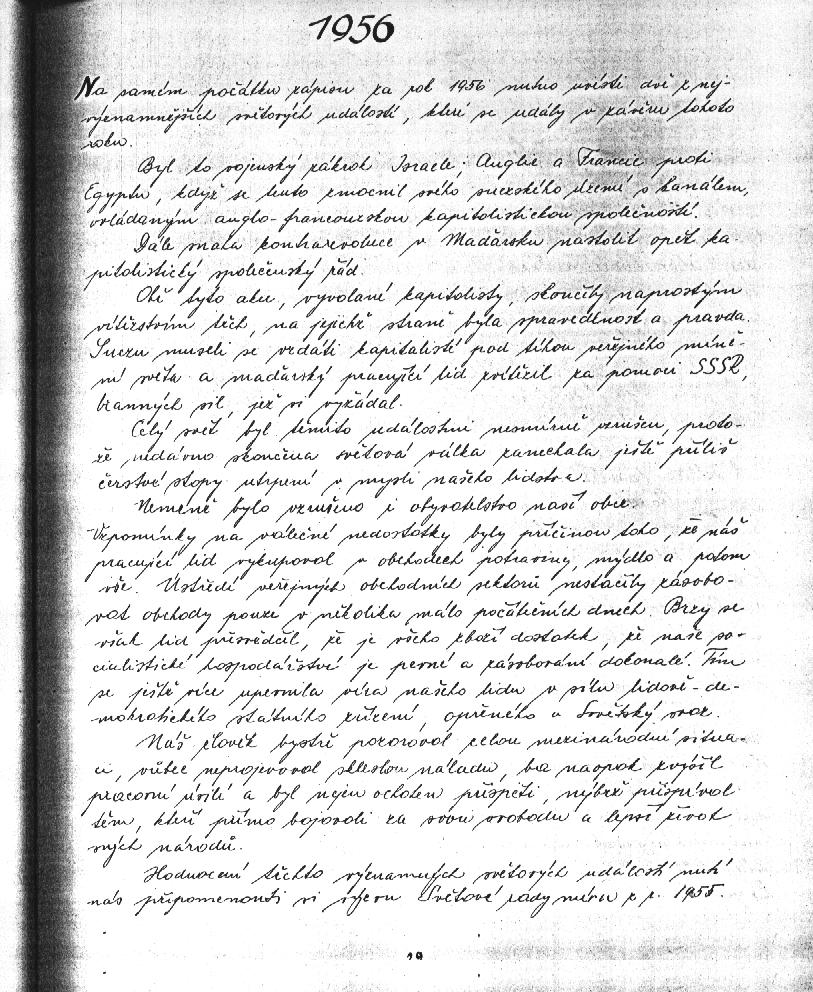 1956
Na samém počátku zápisu za rok 1956 nutno uvésti dvě z nej-
významnějších světových událostí, které se udály v závěru tohoto
roku.
Byl to vojenský zákrok Israele, Anglie a Francie proti
Egyptu, když se tento zmocnil svého suezského území s kanálem,
ovládaným anglo-francouzskou kapitolistickou společností.
Dále snaha kontrarevoluce v Maďarsku nastolit opět ka-
pitolistický společenský řád.
Obě tyto akce, vyvolané kapitolisty, skončily naprostým
vítězstvím těch, na jejichž straně byla spravedlnost a pravda.
Suezu museli se vzdáti kapitalisté pod tíhou veřejného míně-
ní světa a maďarský pracující lid zvítězil za pomoci SSSR,
branných sil, jež si vyžádal.
Celý svět byl těmito událostmi nesmírně vzrušen, proto-
že nedávno skončena světová válka zanechala ještě příliš
čerstvé stopy utrpení v mysli našeho lidstva.
Neméně bylo vzrušeno i obyvatelstvo naší obce.
Vzpomínky na válečné nedostatky byly příčinou toho, že náš
pracující lid vykupoval v obchodech potraviny, mýdlo a potom
vše. Ústředí veřejných obchodních sektorů nestačily zásobo-
vat obchody pouze v několika málo počátečních dnech. Brzy se
však lid přesvědčil, že je všeho zboží dostatek, že naše so-
cialistické hospodářství je pevné a zásobování dokonalé. Tím
se ještě více upevnila víra našeho lidu v sílu lidově-de-
mokratického státního zřízení, opřeného o Sovětský svaz.
Náš člověk bystře pozoroval celou mezinárodní situa-
ci, vůbec neprojevoval skleslou náladu, ba naopak zvýšil
pracovní úsilí a byl nejen ochoten přispěti, nýbrž přispíval
těm, kteří přímo bojovali za svou svobodu a lepší život
svých národů.
Hodnocení těchto významných světových událostí nutí
nás připomenouti si výzvu Světové rady míru z r. 1955.
19